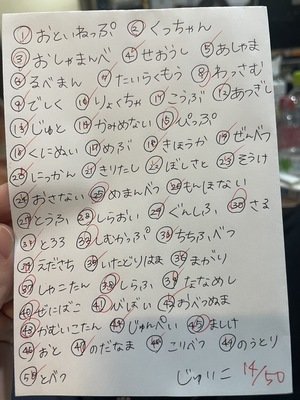 ① おといねっぷ ② くっちゃん
③ おしゃまんべ ④ せおうし ⑤ あしゃま
⑥ るべまん ⑦ たいらくもう ⑧ わっさむ
⑨ でしく ⑩ りょくちゃ ⑪ こうぶ ⑫ あつぎし
⑬ じゅと ⑭ かみめない ⑮ ぴっぷ
⑯ くにぬい ⑰ めぶ ⑱ きほうか ⑲ ぜんべつ
⑳ にっかん ㉑ きりたし ㉒ ぼしさと ㉓ そうけ
㉔ おさない ㉕ めまんべつ ㉖ もーほない
㉗ とうふ ㉘ しらおい ㉙ ぐんしふ ㉚ さる
㉛ とろろ ㉜ しむかっぷ ㉝ ちちぶべつ
㉞ えださち ㉟ いたどりはま ㊱ まがり
㊲ しゃこたん ㊳ しらふ ㊴ ななめし
㊵ ぜにばこ ㊶ びばい ㊷ おべつぬま
㊸ かむいこたん ㊹ じゅんぺい ㊺ ましけ
㊻ おと ㊼ のだなま ㊽ こりべつ ㊾ のうとり
㊿ とべつ じゅりこ 14/50